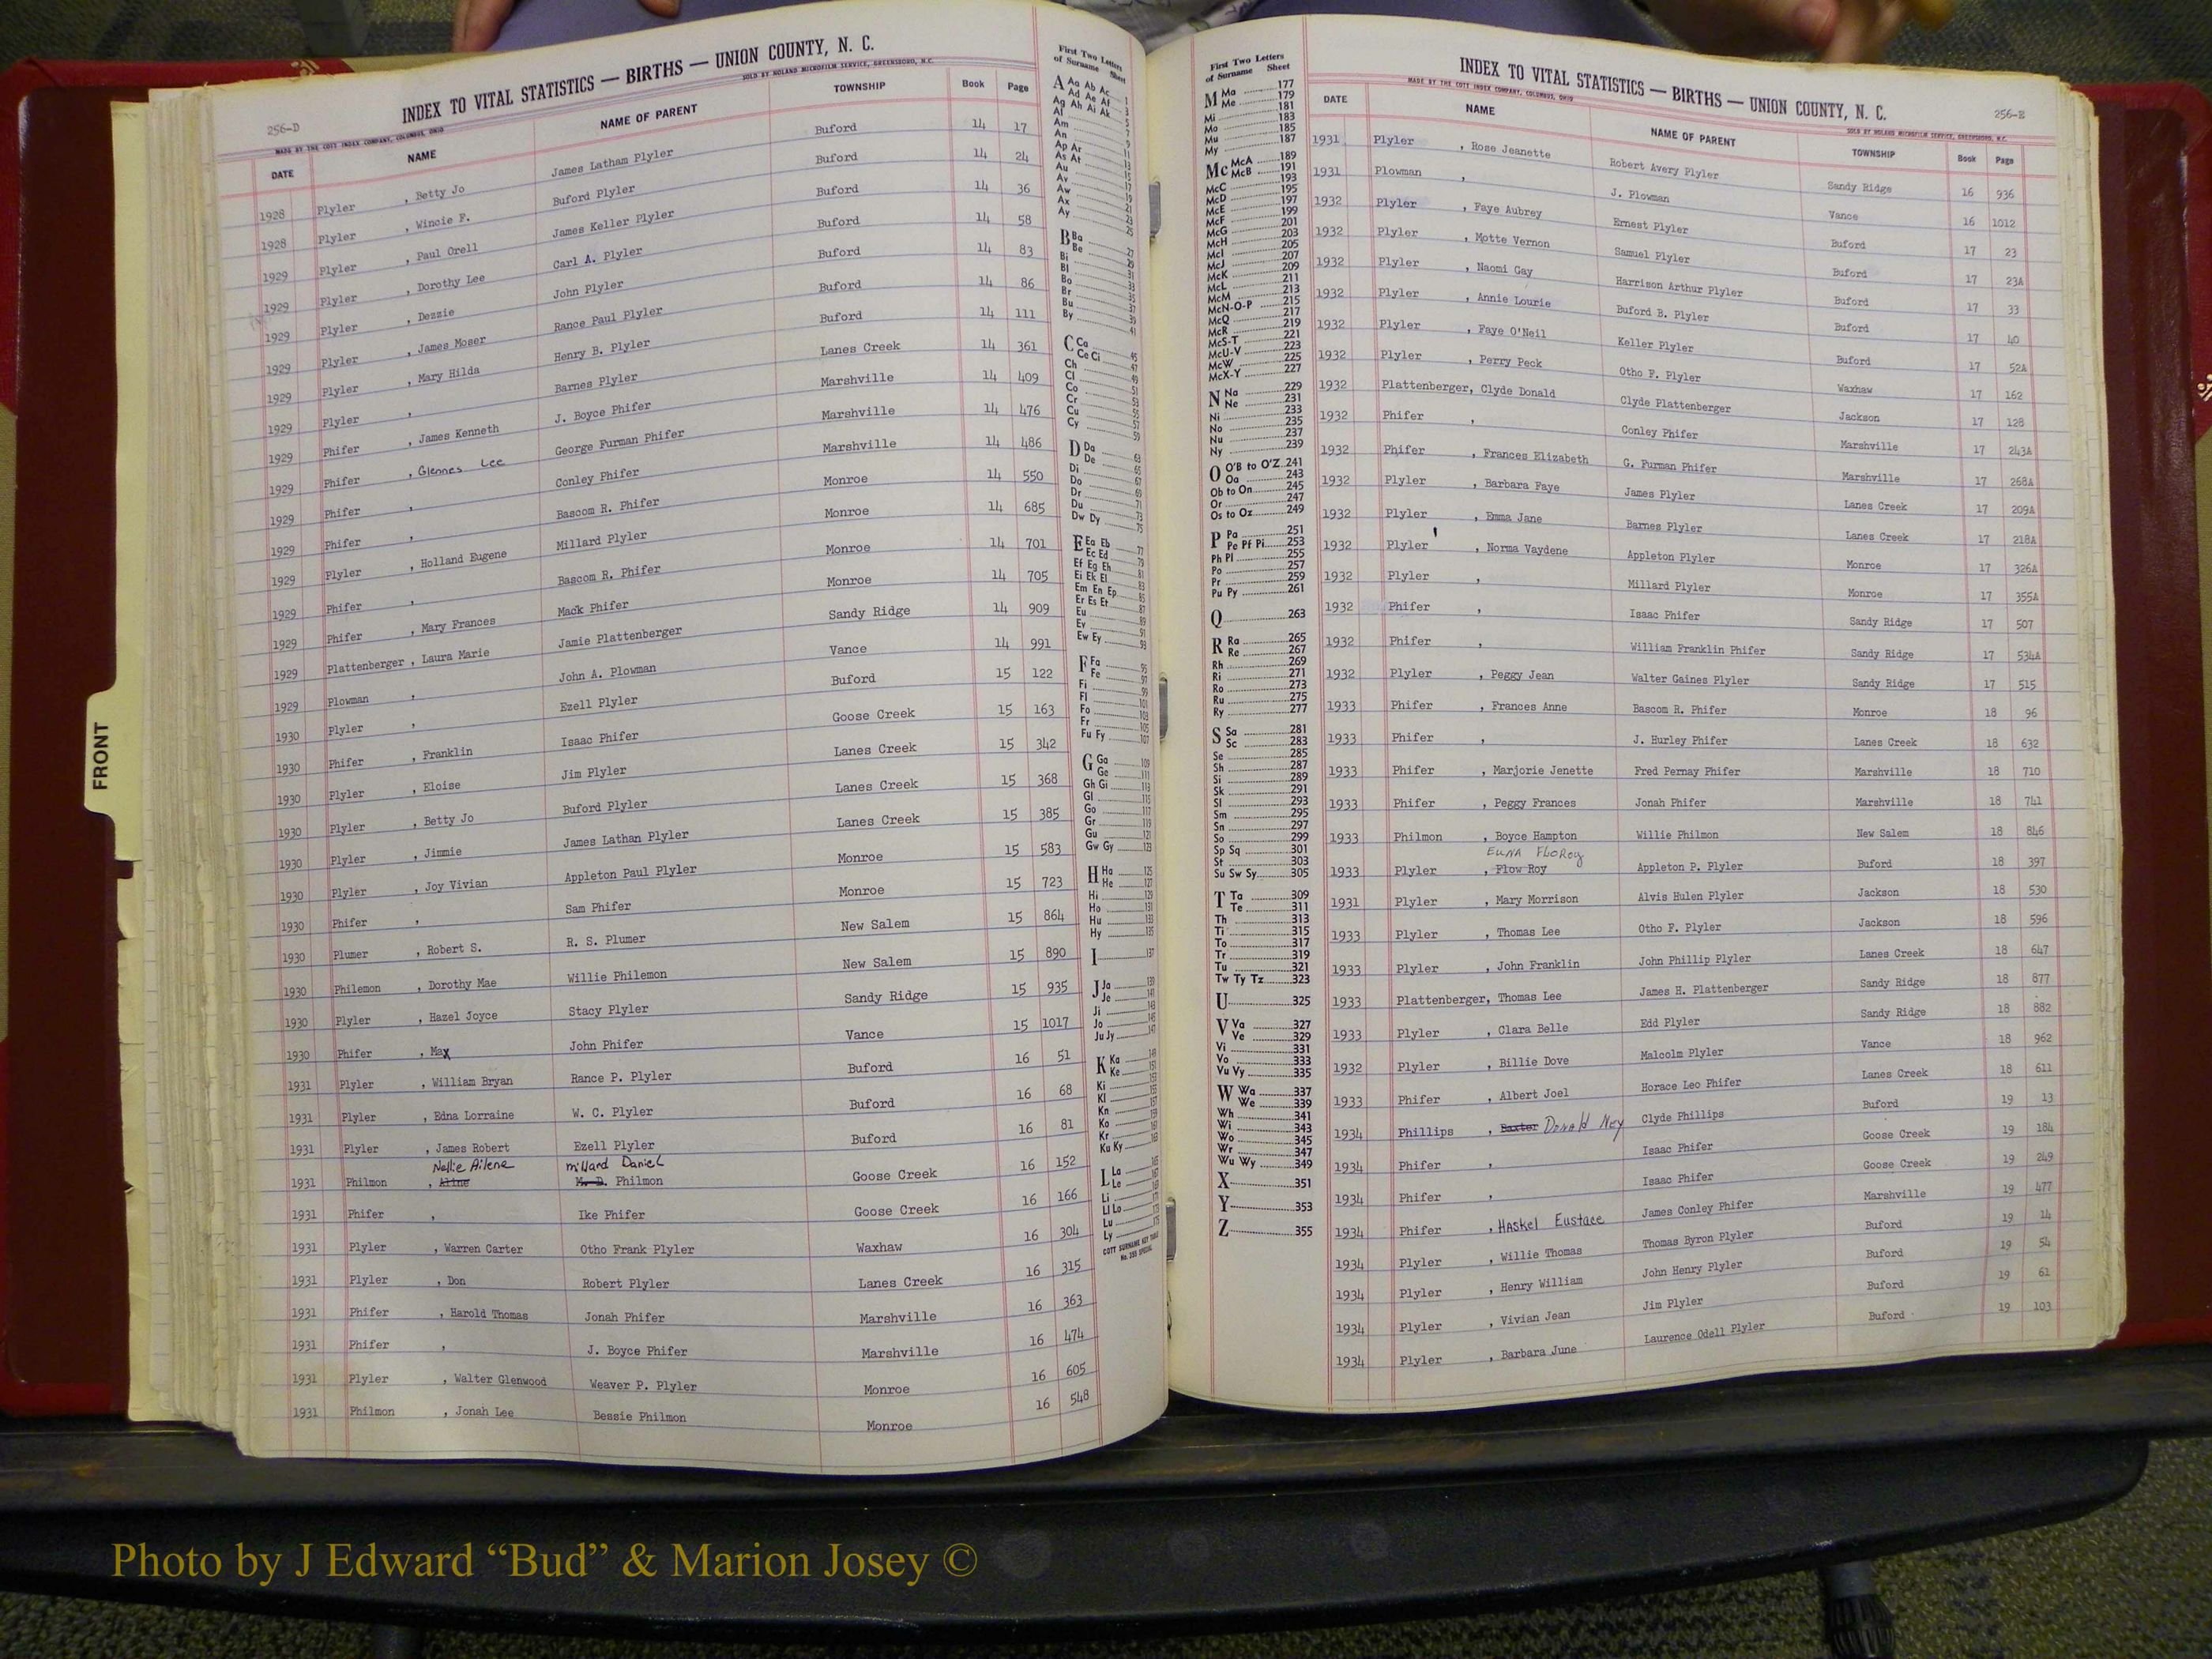 256-D
INDEX TO VITAL STATISTICS — BIRTHS — UNION COUNTY, N. C.
MADE BY THE COTT INDEX COMPANY, COLUMBUS, OHIO SOLD BY NOLAND MICROFILM SERVICE, GREENSBORO, N.C.
DATE NAME NAME OF PARENT TOWNSHIP Book Page
1928 Plyler , Betty Jo James Latham Plyler Buford 14 17
1928 Plyler , Wincie F. Buford Plyler Buford 14 24
1929 Plyler , Paul Orell James Keller Plyler Buford 14 36
1929 Plyler , Dorothy Lee Carl A. Plyler Buford 14 58
1929 Plyler , Dezzie John Plyler Buford 14 83
1929 Plyler , James Moser Rance Paul Plyler Buford 14 86
1929 Plyler , Mary Hilda Henry B. Plyler Buford 14 111
1929 Plyler , Barnes Plyler Lanes Creek 14 361
1929 Phifer , James Kenneth J. Boyce Phifer Marshville 14 409
1929 Phifer , Glennes Lee George Furman Phifer Marshville 14 476
1929 Phifer , Conley Phifer Marshville 14 486
1929 Phifer , Bascom R. Phifer Monroe 14 550
1929 Plyler , Holland Eugene Millard Plyler Monroe 14 685
1929 Phifer , Bascom R. Phifer Monroe 14 701
1929 Phifer , Mary Frances Mack Phifer Monroe 14 705
1929 Plattenberger , Laura Marie Jamie Plattenberger Sandy Ridge 14 909
1929 Plowman , John A. Plowman Vance 14 991
1930 Plyler , Ezell Plyler Buford 15 122
1930 Phifer , Franklin Isaac Phifer Goose Creek 15 163
1930 Plyler , Eloise Jim Plyler Lanes Creek 15 342
1930 Plyler , Betty Jo Buford Plyler Lanes Creek 15 368
1930 Plyler , Jimmie James Lathan Plyler Lanes Creek 15 385
1930 Plyler , Joy Vivian Appleton Paul Plyler Monroe 15 583
1930 Phifer , Sam Phifer Monroe 15 723
1930 Plumer , Robert S. R. S. Plumer New Salem 15 864
1930 Philemon , Dorothy Mae Willie Philemon New Salem 15 890
1930 Plyler , Hazel Joyce Stacy Plyler Sandy Ridge 15 935
1930 Phifer , Max John Phifer Vance 15 1017
1931 Plyler , William Bryan Rance P. Plyler Buford 16 51
1931 Plyler , Edna Lorraine W. C. Plyler Buford 16 68
1931 Plyler , James Robert Ezell Plyler Buford 16 81
Nellie Ailene Millard Daniel
1931 Philmon , Aline M. D. Philmon Goose Creek 16 152
1931 Phifer , Ike Phifer Goose Creek 16 166
1931 Plyler , Warren Carter Otho Frank Plyler Waxhaw 16 304
1931 Plyler , Don Robert Plyler Lanes Creek 16 315
1931 Phifer , Harold Thomas Jonah Phifer Marshville 16 363
1931 Phifer , J. Boyce Phifer Marshville 16 474
1931 Plyler , Walter Glenwood Weaver P. Plyler Monroe 16 605
1931 Philmon , Jonah Lee Bessie Philmon Monroe 16 548
First Two Letters
of Surname Sheet
A Aa Ab Ac 1
Ad Ae Af 3
Ag Ah Ai Ak 5
Al 7
Am 9
An 11
Ap Ar 13
As At 15
Au 17
Av 19
Aw 21
Ax 23
Ay 25
B Ba 27
Be 29
Bi 31
Bl 33
Bo 35
Br 37
Bu 39
By 41
C Ca 45
Ce Ci 47
Ch 49
Cl 51
Co 53
Cr 55
Cu 57
Cy 59
D Da 63
De 65
Di 67
Do 69
Dr 71
Du 73
Dw Dy 75
E Ea Eb 77
Ec Ed 79
Ef Eg Eh 81
Ei Ek El 83
Em En Ep 85
Er Es Et 87
Eu 89
Ev 91
Ew Ey 93
F Fa 95
Fe 97
Fi 99
Fl 101
Fo 103
Fr 105
Fu Fy 107
G Ga 109
Ge 111
Gh Gi 113
Gl 115
Go 117
Gr 119
Gu 121
Gw Gy 123
H Ha 125
He 127
Hi 129
Ho 131
Hu 133
Hy 135
I 137
J Ja 139
Je 141
Ji 143
Jo 145
Ju Jy 147
K Ka 149
Ke 151
Ki 153
Kl 155
Kn 157
Ko 159
Kr 161
Ku Ky 163
L La 165
Le 167
Li 169
Ll Lo 171
Lu 173
Ly 175
COTT SURNAME KEY TABLE
FRONT
First Two Letters
of Surname Sheet
M Ma 177
Me 179
Mi 181
Mo 183
Mu 185
My 187
Mc McA 189
McB 191
McC 193
McD 195
McE 197
McF 199
McG 201
McH 203
McI 205
McJ 207
McK 209
McL 211
McM 213
McN-O-P 215
McQ 217
McR 219
McS-T 221
McU-V 223
McW 225
McX-Y 227
N Na 229
Ne 231
Ni 233
No 235
Nu 237
Ny 239
O O'B to O'Z 241
Oa 243
Ob to On 245
Or 247
Os to Oz 249
P Pa 251
Pe Pf Pi 253
Ph Pl 255
Po 257
Pr 259
Pu Py 261
Q 263
R Ra 265
Re 267
Rh 269
Ri 271
Ro 273
Ru 275
Ry 277
S Sa 281
Sc 283
Se 285
Sh 287
Si 289
Sk 291
Sl 293
Sm 295
Sn 297
So 299
Sp Sq 301
St 303
Su Sw Sy 305
T Ta 309
Te 311
Th 313
Ti 315
To 317
Tr 319
Tu 321
Tw Ty Tz 323
U 325
V Va 327
Ve 329
Vi 331
Vo 333
Vu Vy 335
W Wa 337
We 339
Wh 341
Wi 343
Wo 345
Wr 347
Wu Wy 349
X 351
Y 353
Z 355
INDEX TO VITAL STATISTICS — BIRTHS — UNION COUNTY, N. C.
256-E
MADE BY THE COTT INDEX COMPANY, COLUMBUS, OHIO SOLD BY NOLAND MICROFILM SERVICE, GREENSBORO, N.C.
DATE NAME NAME OF PARENT TOWNSHIP Book Page
1931 Plyler , Rose Jeanette Robert Avery Plyler Sandy Ridge 16 936
1931 Plowman , J. Plowman Vance 16 1012
1932 Plyler , Faye Aubrey Ernest Plyler Buford 17 23
1932 Plyler , Motte Vernon Samuel Plyler Buford 17 23A
1932 Plyler , Naomi Gay Harrison Arthur Plyler Buford 17 33
1932 Plyler , Annie Lourie Buford B. Plyler Buford 17 40
1932 Plyler , Faye O'Neil Keller Plyler Buford 17 52A
1932 Plyler , Perry Peck Otho F. Plyler Waxhaw 17 162
1932 Plattenberger, Clyde Donald Clyde Plattenberger Jackson 17 128
1932 Phifer , Conley Phifer Marshville 17 243A
1932 Phifer , Frances Elizabeth G. Furman Phifer Marshville 17 268A
1932 Plyler , Barbara Faye James Plyler Lanes Creek 17 209A
1932 Plyler , Emma Jane Barnes Plyler Lanes Creek 17 218A
1932 Plyler , Norma Vaydene Appleton Plyler Monroe 17 326A
1932 Plyler , Millard Plyler Monroe 17 355A
1932 Phifer , Isaac Phifer Sandy Ridge 17 507
1932 Phifer , William Franklin Phifer Sandy Ridge 17 534A
1932 Plyler , Peggy Jean Walter Gaines Plyler Sandy Ridge 17 515
1933 Phifer , Frances Anne Bascom R. Phifer Monroe 18 96
1933 Phifer , J. Hurley Phifer Lanes Creek 18 632
1933 Phifer , Marjorie Jenette Fred Pernay Phifer Marshville 18 710
1933 Phifer , Peggy Frances Jonah Phifer Marshville 18 741
1933 Philmon , Boyce Hampton Willie Philmon New Salem 18 846
Euna FloRoy
1933 Plyler , Flow Roy Appleton P. Plyler Buford 18 397
1931 Plyler , Mary Morrison Alvis Hulen Plyler Jackson 18 530
1933 Plyler , Thomas Lee Otho F. Plyler Jackson 18 596
1933 Plyler , John Franklin John Phillip Plyler Lanes Creek 18 647
1933 Plattenberger, Thomas Lee James H. Plattenberger Sandy Ridge 18 877
1933 Plyler , Clara Belle Edd Plyler Sandy Ridge 18 882
1932 Plyler , Billie Dove Malcolm Plyler Vance 18 962
1933 Phifer , Albert Joel Horace Leo Phifer Lanes Creek 18 611
1934 Phillips , Baxter Donald Ney Clyde Phillips Buford 19 13
1934 Phifer , Isaac Phifer Goose Creek 19 184
1934 Phifer , Isaac Phifer Goose Creek 19 249
1934 Phifer , Haskel Eustace James Conley Phifer Marshville 19 477
1934 Plyler , Willie Thomas Thomas Byron Plyler Buford 19 14
1934 Plyler , Henry William John Henry Plyler Buford 19 54
1934 Plyler , Vivian Jean Jim Plyler Buford 19 61
1934 Plyler , Barbara June Laurence Odell Plyler Buford 19 103
Photo by J Edward “Bud” & Marion Josey ©